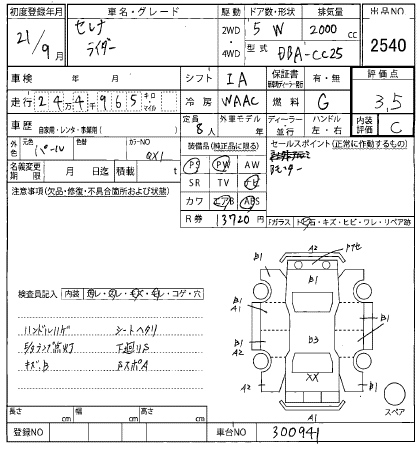 初度登録年月
21/9月
車名・グレード
セレナ
ライダー
駆動
2WD
4WD
ドア数・形状
5 W
排気量
2000 cc
型式
DBA-CC25
出品NO
2540
車検 年 月
シフト IA
保証書 有・無
評価点
3,5
走行 244965 キロ マイル
冷房 WAAC
燃料 G
車歴 自家用・レンタ・事業用( )
定員 8人
外車モデル 年
ディーラー 並行
ハンドル 左・右
内装評価 C
外色 元色 パール 色替 カラーNO QX1
装備品(純正品に限る)
PS PW AW
SR TV ナビ
カワ エアB ABS
セールスポイント(正常に作動するもの)
名義変更期限 月 日迄 積載 t
R券 13720円
注意事項(欠品・修復・不具合箇所および状態)
Fガラス トビ石・キズ・ヒビ・ワレ・リペア跡
検査員記入 内装 汚レ・スレ・キズ・モレ・コゲ・穴
ハンドルハゲ シートヘタリ
キズ、B
A2
B1
B1
B1
A1
B1
B1
B3
B1
A2
A2
XX
A1
スペア
長さ cm 幅 cm 高さ cm
登録NO
車台NO 300941